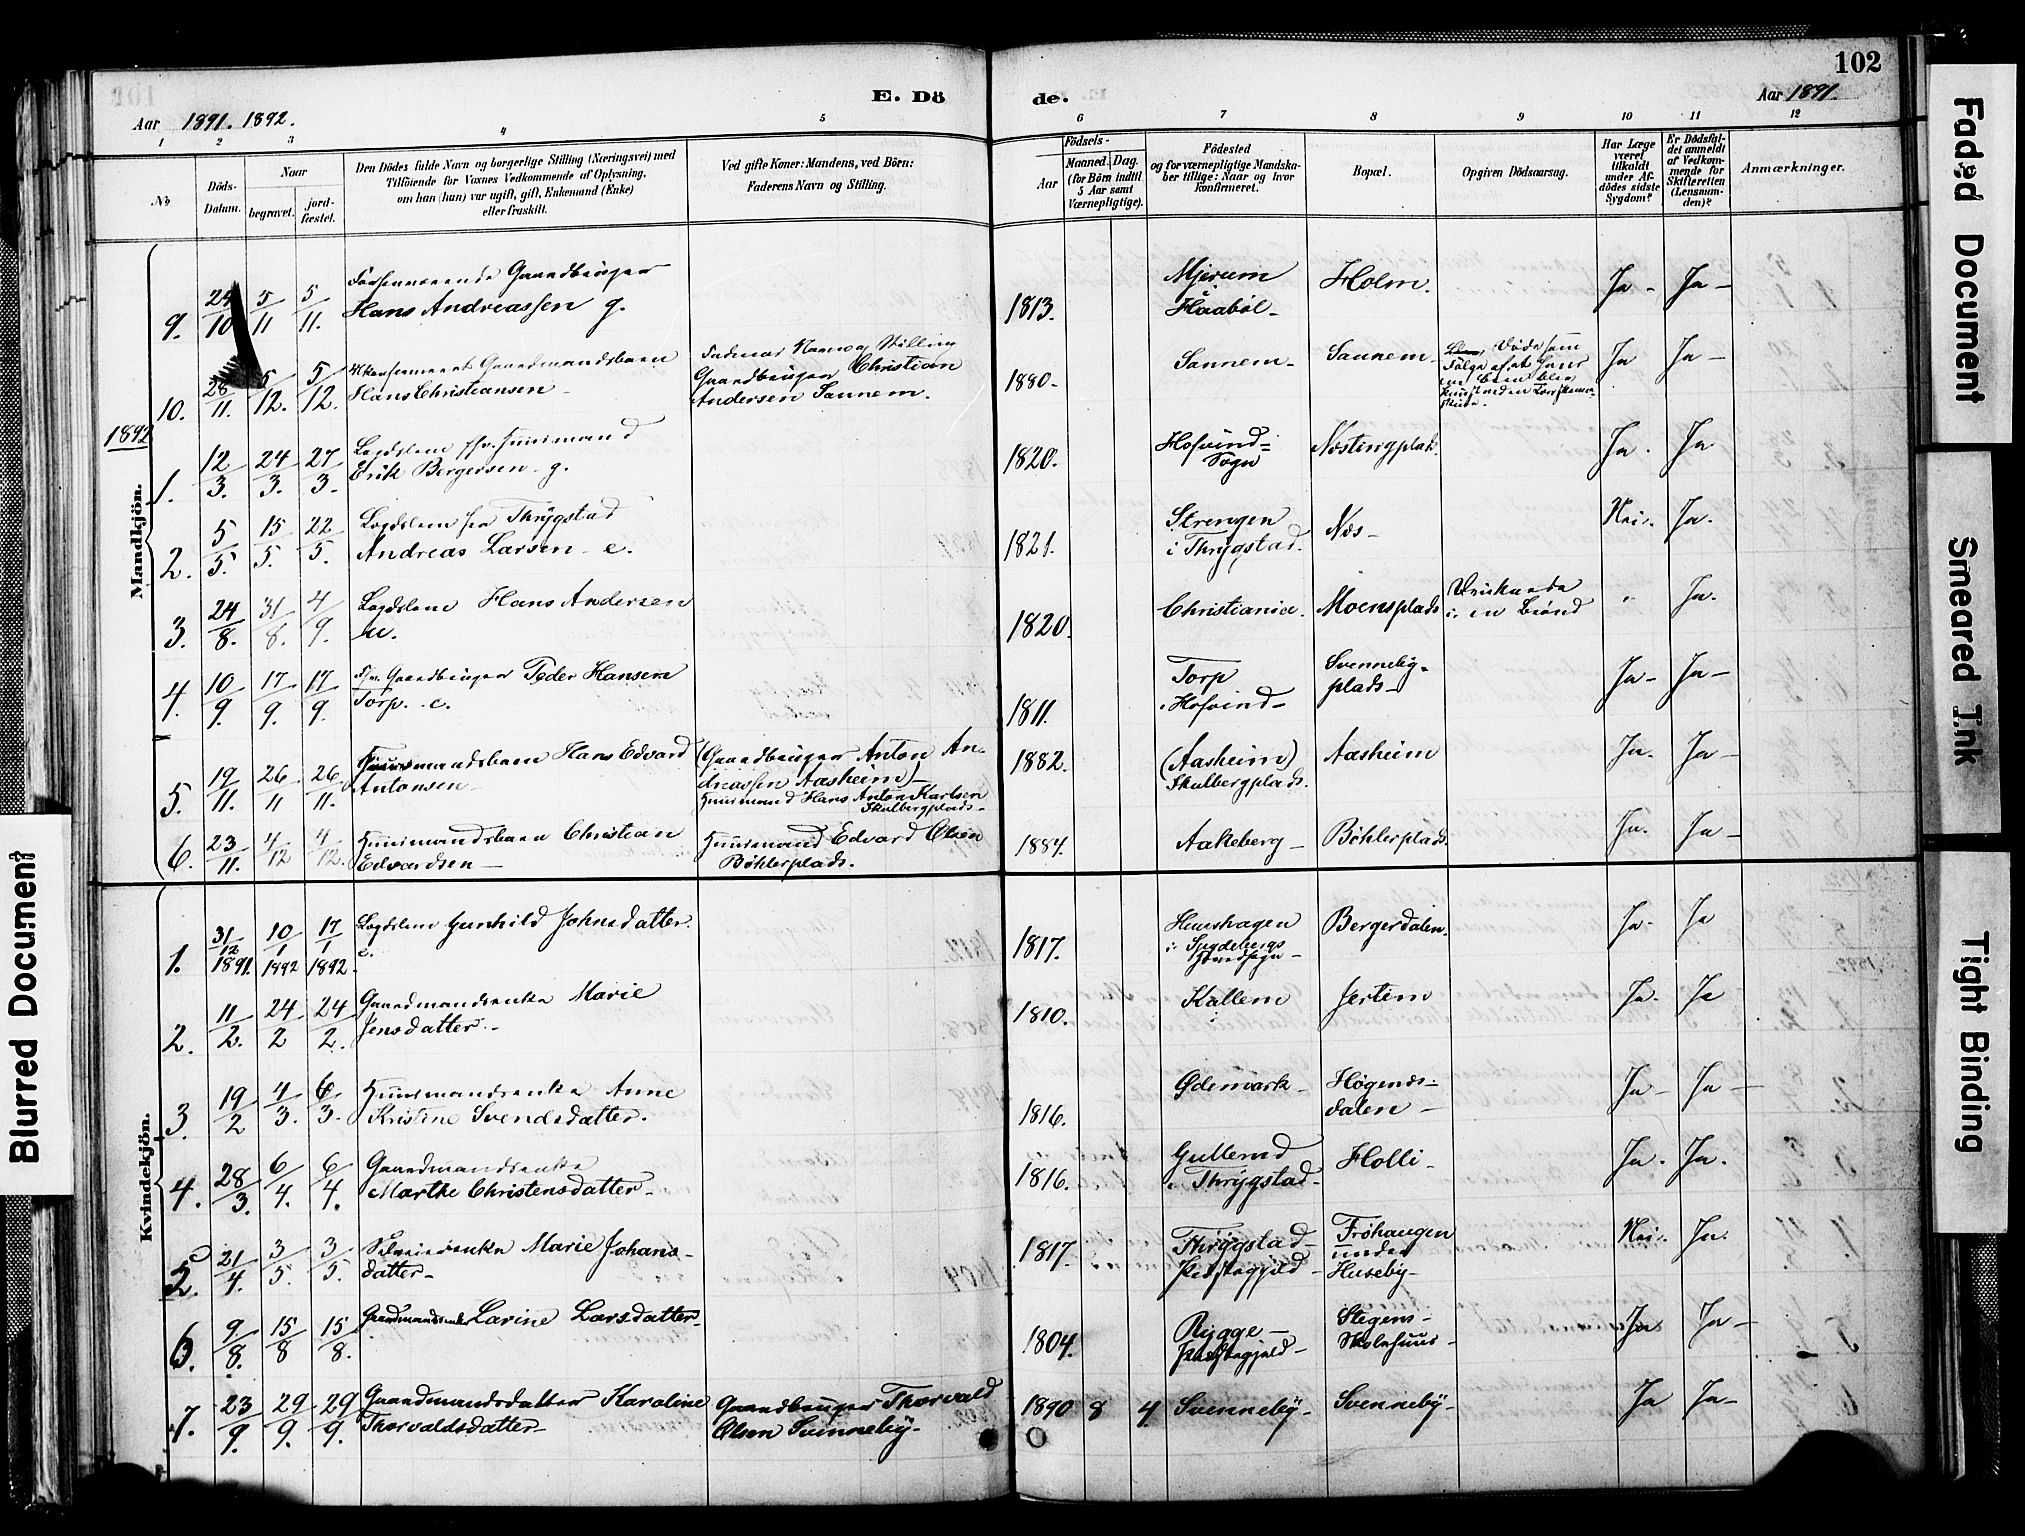 102
E. Dö
de.
Aar 1891. 1892.
Aar 1891.
1 2 3 4 5 6 7 8 9 10 11 12
No
Döds-
Datum.
Naar
begravet.
jord-
fæstet.
Den Dödes fulde Navn og borgerlige Stilling (Næringsvei) med
Tilföiende for Voxnes Vedkommende af Oplysning,
om han (hun) var ugift, gift, Enkemand (Enke)
eller fraskilt.
Ved gifte Koner: Mandens, ved Börn:
Faderens Navn og Stilling.
Födsels-
Aar
Maaned. Dag.
(for Börn indtil
5 Aar samt
Værnepligtige).
Födested
og for værnepligtige Mandska-
ber tillige: Naar og hvor
konfirmeret.
Bopæl.
Opgiven Dödsaarsag.
Har Læge
været
tilkaldt
under Af-
dödes sidste
Sygdom?
Er Dödsfal-
det anmeldt
af Vedkom-
mende for
Skifteretten
(Lensman-
den)?
Anmærkninger.
Mandkjön.
9. 10 5/11 5/11. Forhenværende Gaardbruger
Hans Andreassen g.
1813. Mjerum
i Haabøl- Holm. Ja- Ja-
10. 28/11. 5/12. 5/12. Gaardmandsbarn
Hans Christiansen-
Faderens Navn og Stilling
Gaardbruger Christian
Andersen Sannem.
1880. Sannem- Sannem- Døde som
Følge af at
Ja Ja-
1892
1. 12/3. 24/3. 27/3. Lægdslem f.v. Huusmand
Erik Bergersen- g.
1820. Hofvind-
Sogn Næstingplads. Ja. Ja
2. 5/5. 15/5. 22/5. Lægdslem fra Thrygstad
Andreas Larsen- e.
1821. Strengen
i Thrygstad. Næs- Nei. Ja.
3. 24/8. 31/8. 4/9. Lægdslem Hans Andersen
1820. Christiania. Moensplads Druknede
i en Brønd " Ja.
4. 10/9. 17/9. 17/9. F.v. Gaardbruger Peder Hansen
Torp. e.
1811. Torp
i Hofvind- Svenneby-
plads- Ja- Ja-
5. 19/11. 26/11 26/11. Huusmandsbarn Hans Edvard
Antonsen-
(Gaardbruger Anton An-
dreassen Aasheim)-
Huusmand Hans Anton Karlsen
Skulbergplads-
1882. (Aasheim)
Skulbergplads. Aasheim Ja. Ja-
6. 23/11. 4/12 4/12. Huusmandsbarn Christian
Edvardsen-
Huusmand Edvard Olsen
Böhlerplads.
1884. Aakeberg- Böhlerplads. Ja. Ja-
Kvindekjön.
1. 31/12 1891. 10/1 1892 17/1 1892. Lægdslem Gunhild Johnsdatter.
e.
1817. i Spydebergs
Bergerdalen- Ja- Ja
2. 11/2. 24/2 24/2. Gaardmandsenke Marie
Jensdatter.-
1810. Kallem Jertem Ja- Ja
3. 19/2 4/3. 6/3. Huusmandsenke Anne
Kristine Svendsdatter.
1816. Ødemark- Høgends-
dalen- Ja- Ja-
4. 28/3. 6/4. 6/4. Gaardmandsenke
Marthe Christensdatter-
1816. Gullerud
i Thrygstad- Holli- Ja. Ja.
5. 21/4. 3/5. 3/5. Marie Johans-
datter-
1817. Thrygstad
Præstegjeld- Fröhaugen
under
Huseby- Nei. Ja.
6. 9/8. 15/8 15/8. Gaardmandsenke Larine Larsdatter-
1804. Rygge-
Præstegjeld- Stegens-
Skolehuus- Ja Ja-
7. 23/9. 29/9. 29/9. Gaardmandsdatter Karoline
Thorvaldsdatter-
Gaardbruger Thorvald
Olsen Svenneby-
1890 8 4 Svenneby- Svenneby- Ja Ja-
Faded Document
Smeared Ink
Tight Binding
Blurred Document